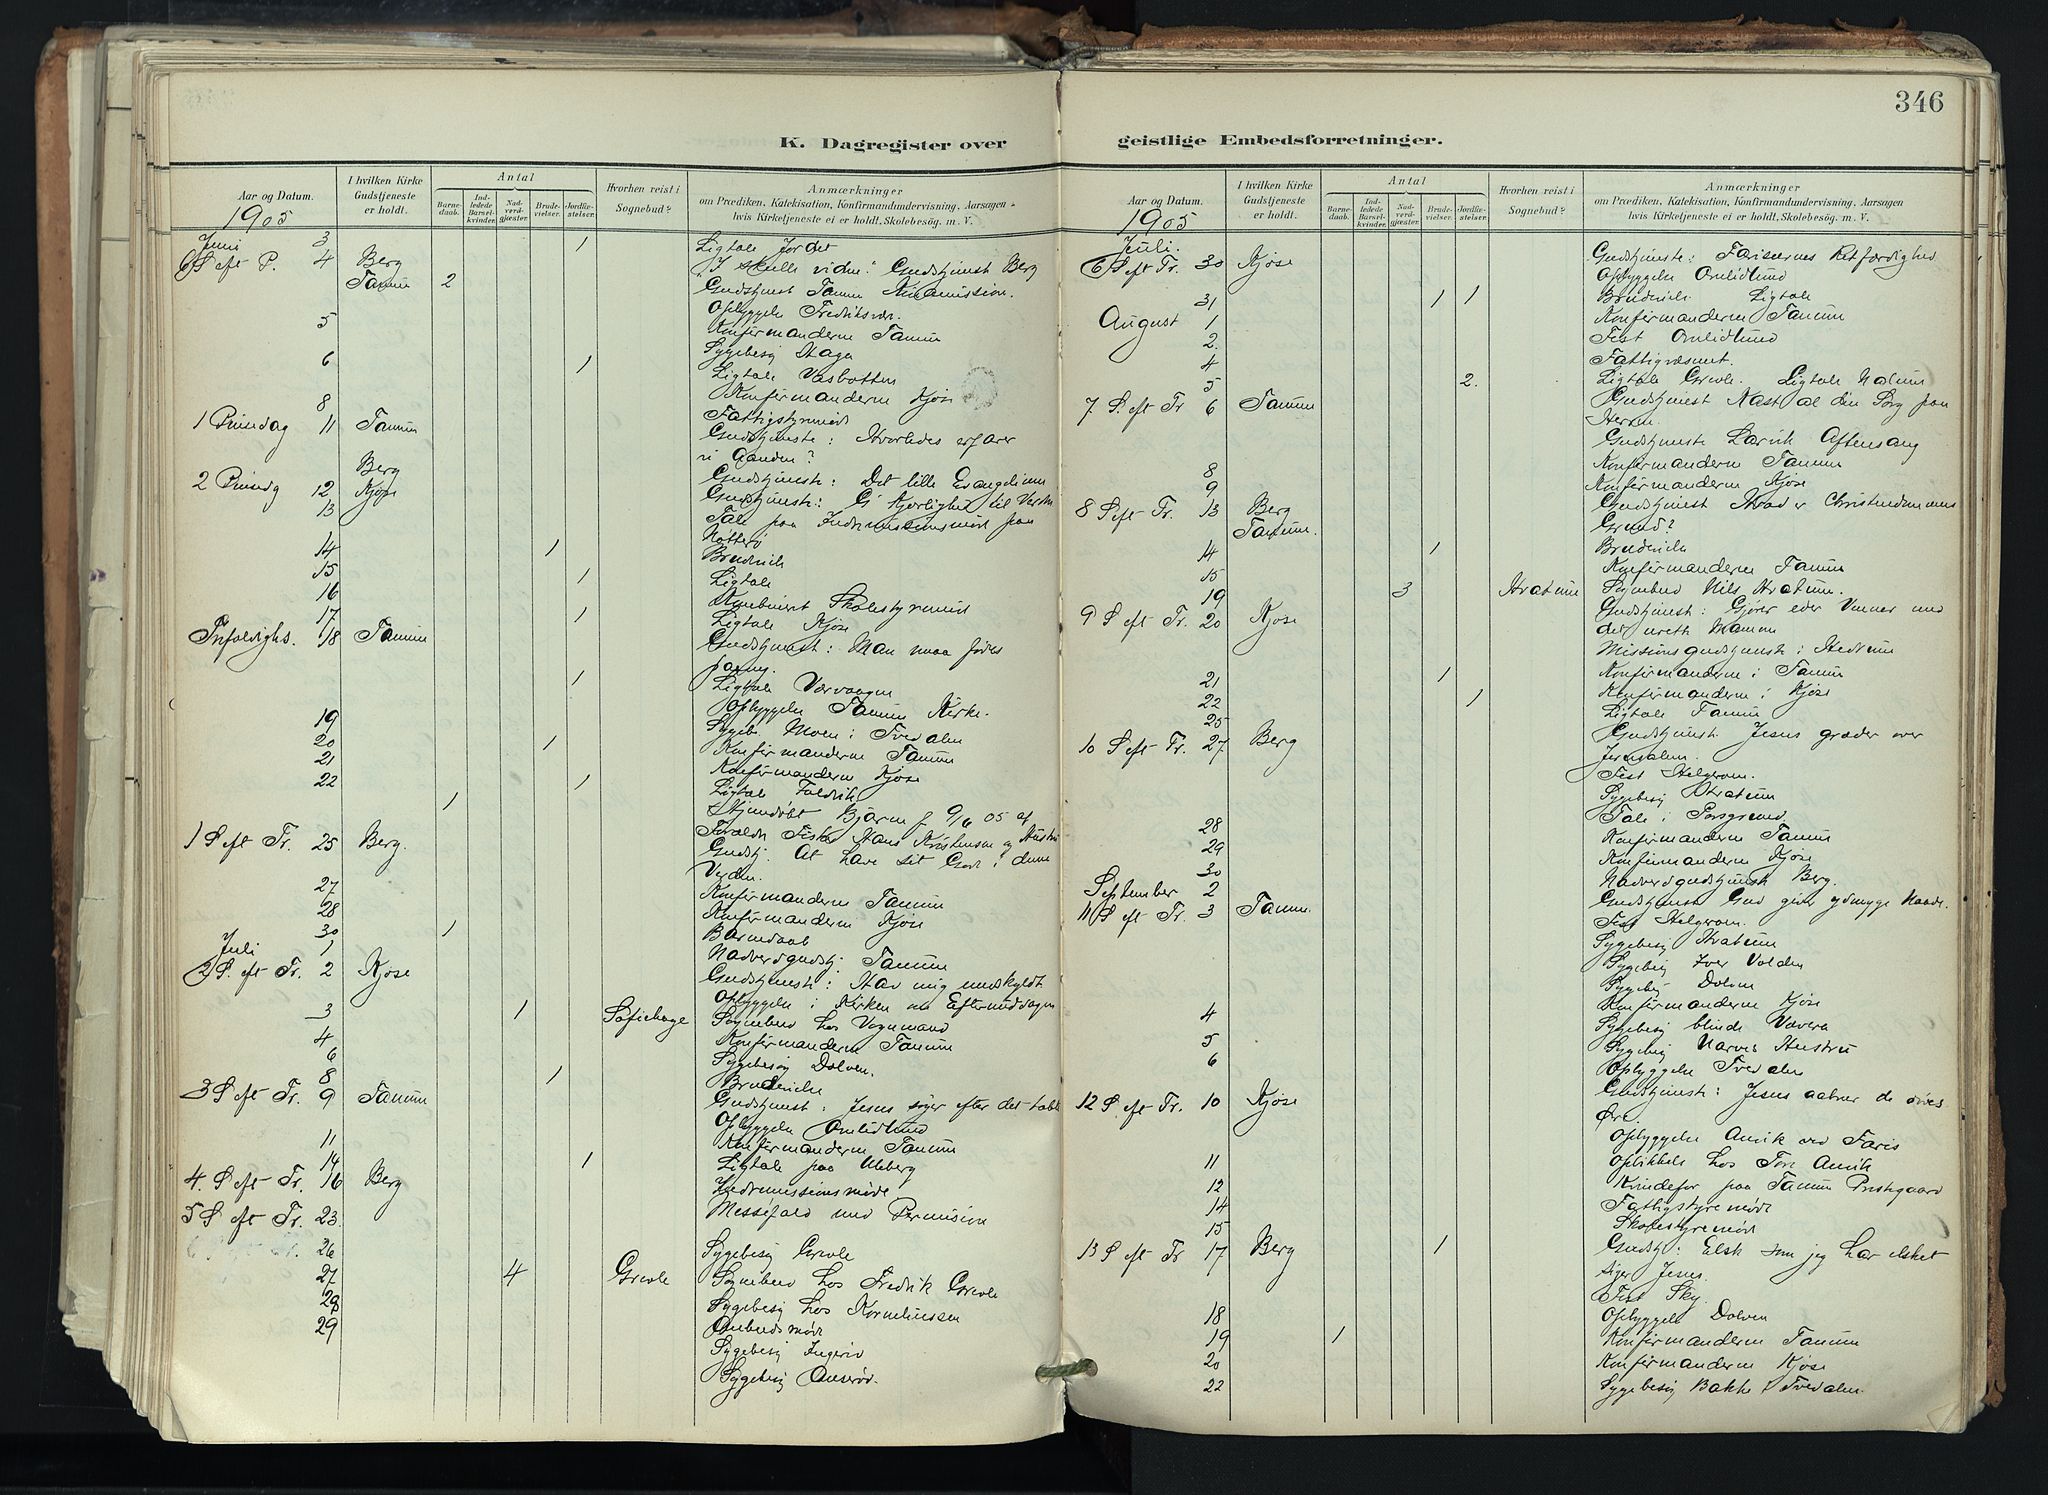 346
K. Dagregister over geistlige Embedsforretninger.
Aar og Datum.
I hvilken Kirke Gudstjeneste er holdt.
Antal
Barne-daab.
Ind-ledede Barsel-kvinder.
Nad-verd-gjester.
Brude-vielser.
Jordfæ-stelser.
Hvorhen reist i Sognebud?
Anmærkninger
om Prædiken, Katekisation, Konfirmandundervisning, Aarsagen
hvis Kirketjeneste ei er holdt, Skolebesøg. m. V.
1905
Juni 3 1 Ligtale Jordet
6 S eft P. 4 Berg "I skulle vidne." Gudstjenest Berg
Tanum 2 Gudstjenest Tanum
Opbyggele Fredriksvær.
5 Konfirmanderne Tanum
Sygebesøg Haga
6 1 Ligtale Vasbotten
Konfirmanderne Kjose
8 Fattigstyremøde
1 Pinsedag 11 Tanum Gudstjeneste: Hvorledes erfarer
vi Aanden?
Berg Gudstjeneste: Det lille Evangelium
2 Pinsedg 12 Kjose Gudstjeneste:
13 Tale paa Indremissionsmøde paa
Nøtterø
14 1 Brudevielse
15 1 Ligtale
16 Kombineret Skolestyremøde
17 1 Ligtale Kjose
Trefoldighs. 18 Tanum Gudstjenest: Man maa fødes
paany.
1 Ligtale Værvaagen
Opbyggele Tanum Kirke.
19 Sygebs. Moen i Tvedalen
20 1 Konfirmanderne Tanum
21 Konfirmanderne Kjose
22 1 Ligtale Foldvik
1 Hjemdøbt Bjarne f 9/6 05 af
Forældre Fisker Hans Kristensen og Hustru
1 S eft Tr. 25 Berg. Gudstj. At have sit Gode i denne
Verden.
27 Konfirmanderne Tanum
28 Konfirmanderne Kjose
30 1 Barnedaab
Juli 1 Nadverdgudstj. Tanum
2 S. eft Tr. 2 Kjose Gudstjeneste: Hav mig undskyldt
Opbyggele i Kirken om Eftermiddagen
3 1 Sofiehage Sognebud hos Vognmand
4 Konfirmanderne Tanum
6 Sygebesøg Dolven.
8 1 Brudevielse
3 S eft Tr. 9 Tanum Gudstjenest: Jesus søger efter det tabte
Opbyggele Omlidlund
11 Konfirmanderne Tanum
14 1 Ligtale paa Uleberg
4. S eft Tr. 16 Berg Indremissionsmøde
5 S eft Tr. 23. Messefald med Permision
26 Sygebesøg Grevle
27 4 Grevle Sognebud hos Fredrik Grevle
28 Sygebesøg hos Kornelinssen
29 Ombudsmøde
Sygebesøg Ingerid
Sygebesøg
Aar og Datum.
I hvilken Kirke Gudstjeneste er holdt.
Antal
Barne-daab.
Ind-ledede Barsel-kvinder.
Nad-verd-gjester.
Brude-vielser.
Jordfæ-stelser.
Hvorhen reist i Sognebud?
Anmærkninger
om Prædiken, Katekisation, Konfirmandundervisning, Aarsagen
hvis Kirketjeneste ei er holdt, Skolebesøg. m. V.
1905
Juli.
6 S eft Tr. 30 Kjose Gudstjeneste: Farisæernes Retfærdighed
Opbyggele Omlidlund
31 1 1 Brudevielse Ligtale
August 1 Konfirmanderne Tanum
2. Fest Omlidlund
4 Fattigvæsenet.
5 2. Ligtale Grevle. Ligtale Nalum
7 S. eft Tr 6 Tanum Gudstjenest Næst al din Sorg paa
Herren.
Gudstjeneste Larvik Aftensang
8 Konfirmanderne Tanum
9 Konfirmanderne Kjose
8 S eft Tr. 13 Berg Gudstjenest Hvad er Christendommens
Tanum. Grund?
14 1 Brudevielse
15 Konfirmanderne Tanum
19 3 Hvatum Sognebud Nils Hvatum.
9 S eft Tr. 20 Kjose Gudstjenest: Gjører eder Venner med
det urette Mammon
Missionsgudstjeneste i Hedrum
21 1 Konfirmanderne i Tanum
22 Konfirmanderne i Kjose
25 1 Ligtale Tanum
10 S eft Tr. 27 Berg Gudstjenest Jesus græder over
Jerusalem.
Fest Helgeroen.
Sygebesøg Hvatum
28 Tale i Porsgrund
29 Konfirmanderne Tanum
30 Konfirmanderne Kjose
September 2 Nadverdgudstjeneste Berg.
11 S eft Tr. 3 Tanum. Gudstjeneste Gud giver ydmyge Naade.
Fest Helgeroen.
Sygebesøg Hvatum
Sygebesøg Iver Volden
Sygebesøg Dolven
4 Konfirmanderne Kjose
5 Sygebesøg blinde
6 Sygebesøg Hustru
Opbyggele Tvedalen
12 S. eft Tr. 10 Kjose Gudstjeneste: Jesus aabner de døves
Øre.
Opbyggele Anvik ved Faris
11 hos Tor Anvik
12 Kvindefor paa Tanum Prestgaard
14 Fattigstyremøde
15 Skolestyremøde
13 S eft Tr 17 Berg 1 Gudstj: Elsk som jeg har elsket
siger Jesus.
Fest Sky
18 Opbyggele Dolven
19 1 Konfirmanderne Tanum
20 Konfirmanderne Kjose
22 Sygebesøg Bakke i Tvedalen.